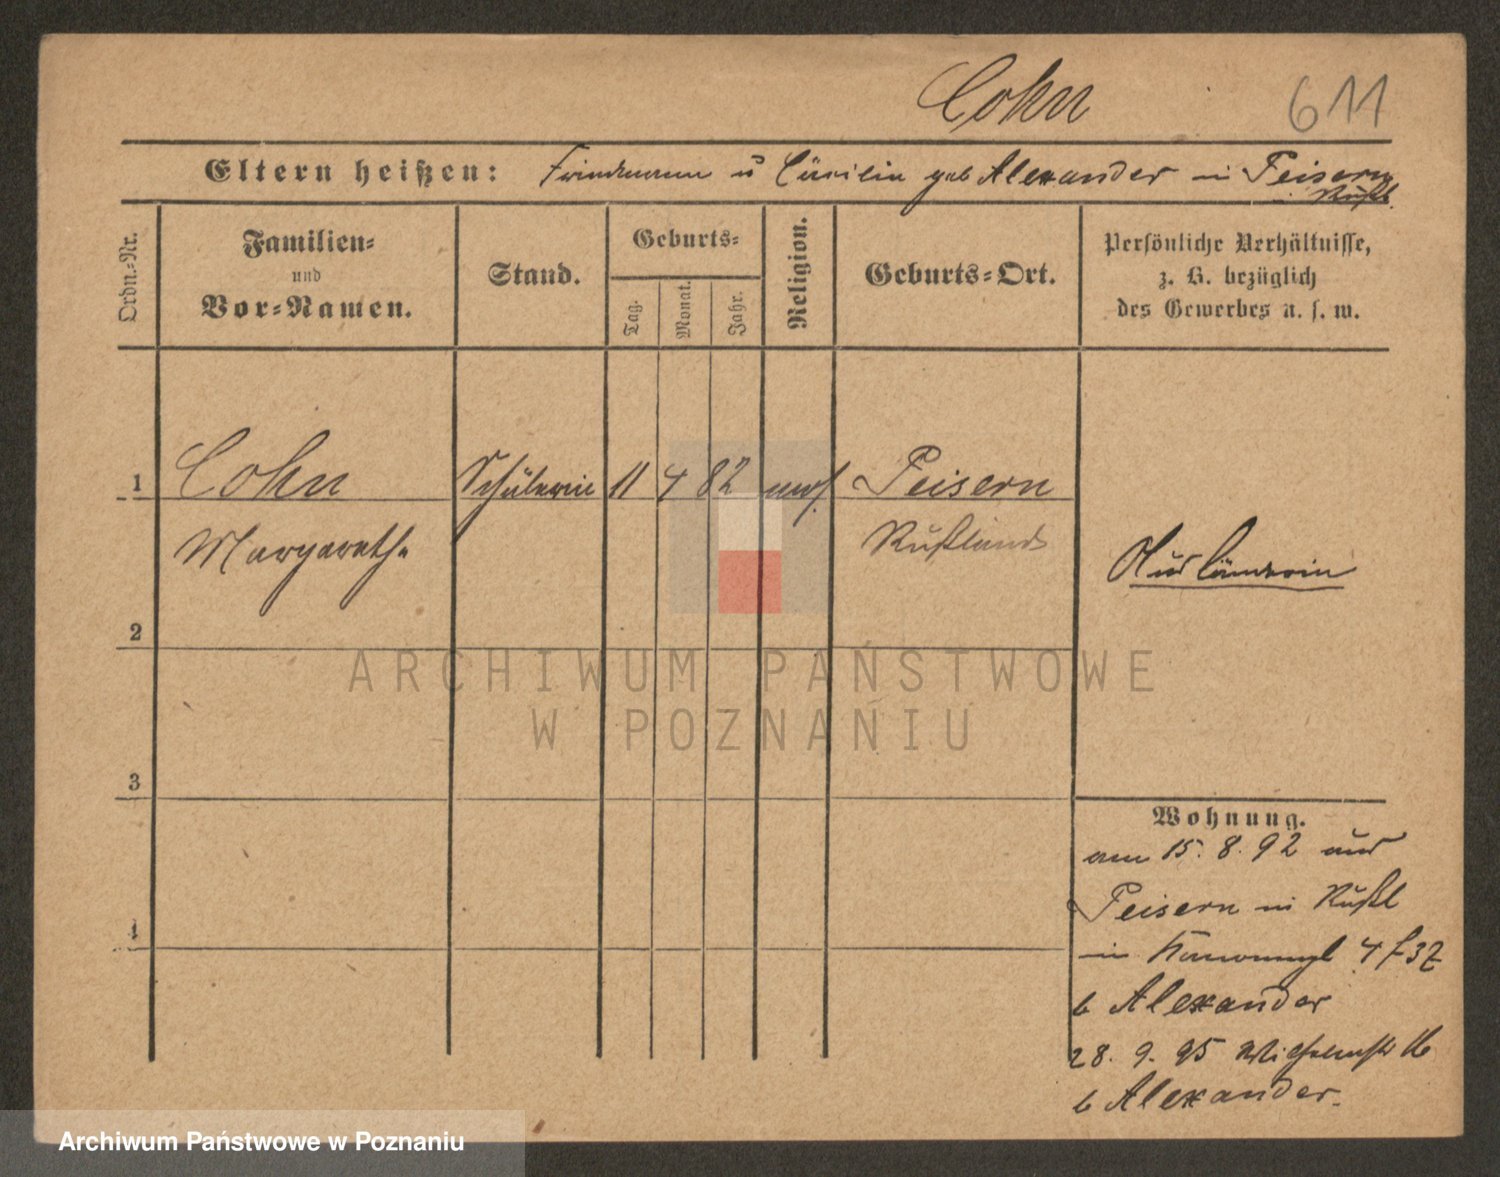 Cohn 611
Eltern heißen: Friedmann u Cäcilie geb Alexander in Peisern
Rußl.
Ordn.-Nr.
Familien-
und
Vor-Namen.
Stand.
Geburts-
Tag.
Monat.
Jahr.
Religion.
Geburts-Ort.
Persönliche Verhältnisse,
z. B. bezüglich
des Gewerbes u. s. w.
1 Cohn Schülerin 11 4 82 mos. Peisern
Margarethe Rußland
Ausländerin
2
ARCHIWUM PAŃSTWOWE
W POZNANIU
3
Wohnung.
am 15. 8. 92 aus
Peisern in Rußl
4
in 4
b Alexander
28. 9. 95 Wilhelmstr 16
b Alexander.
Archiwum Państwowe w Poznaniu